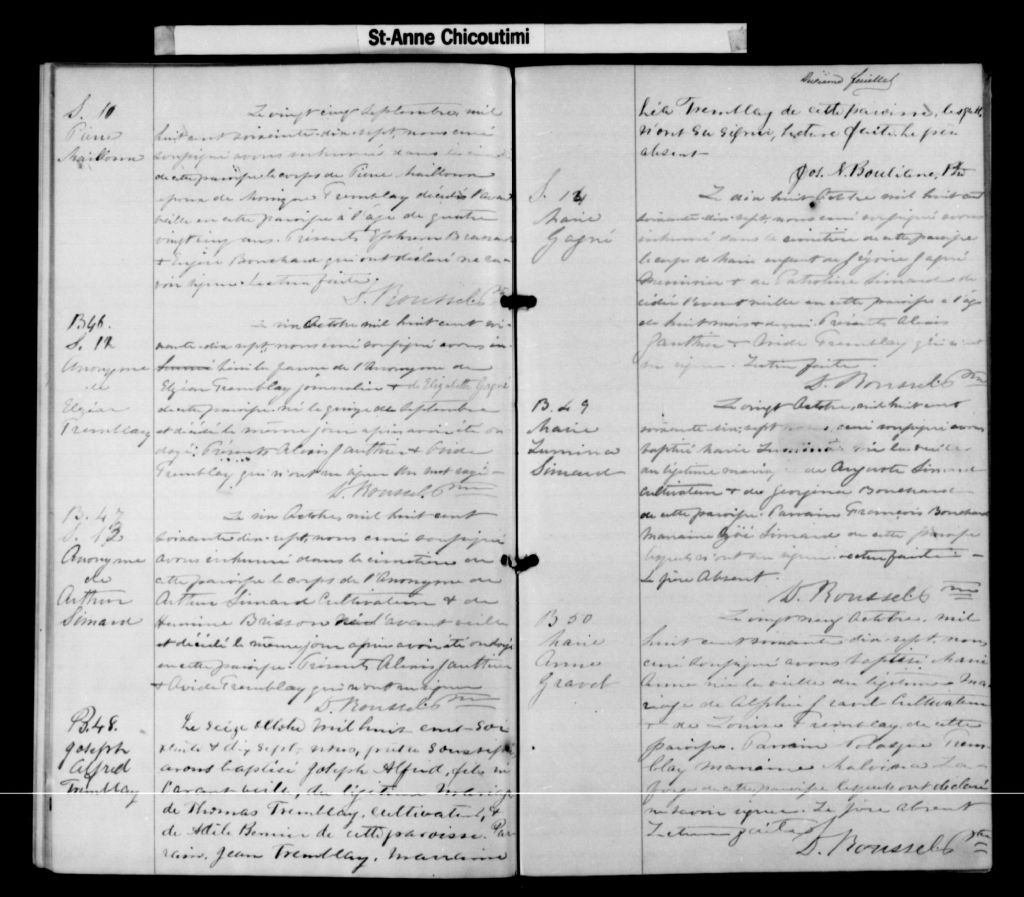 St-Anne Chicoutimi
S. 10
Pierre
Maillown
Le vingt cinq Septembre, mil
huit cent soixante-dix-sept, nous curé
soussigné avons inhumé dans le
de cette paroisse le corps de Pierre Maillown
époux de Monique Tremblay décédé l'avant
veille en cette paroisse à l'age de quatre
vingt cinq ans. Présents Ephrem Brassard
& Bouchard qui ont déclaré ne sa-
voir signer. Lecture faite.
D. Roussel Ptre
B46.
S. 12
Anonyme
de
Elzéar
Tremblay
Le six Octobre mil huit cent soi-
xante-dix-sept, nous curé soussigné avons in-
humé de l'Anonyme de
Elzéar Tremblay journalier & de Elizabeth Gagné
de cette paroisse né le quinze de Septembre
et décédé le même jour après avoir été on-
doyé. Présents Alexis Gauthier & Ovide
Tremblay qui n'ont su signer Un mot rayé
D. Roussel Ptre
B. 47
S. 13
Anonyme
de
Arthur
Simard
Le six Octobre, mil huit cent
soixante-dix-sept, nous curé soussigné
avons inhumé dans le cimetière de
cette paroisse le corps de l'Anonyme de
Arthur Simard Cultivateur & de
Hermine Brisson né l'avant veille
et décédé le même jour après avoir été ondoyé
en cette paroisse. Présents Alexis Gauthier
& Ovide Tremblay qui n'ont su signer
D. Roussel Ptre
B. 48.
Joseph
Alfred
Tremblay
Le seize Octobre mil huit cent soi-
xante & dix Sept, nous, prêtre Soussigné
avons baptisé Joseph Alfred, fils né
l'avant veille, du légitime Mariage
de Thomas Tremblay, cultivateur, &
de Adèle Bernier de cette paroisse. Par-
rain, Jean Tremblay, Marraine
feuillet
Léa Tremblay de cette paroisse, lesquels
n'ont su signer, Lecture faite. Le père
absent
Jos. N. Bouliane, Ptre
S. 14
Marie
Gagné
Le dix huit Octobre mil huit cent
soixante-dix-sept, nous curé soussigné avons
inhumé dans le cimetière de cette paroisse
le corps de Marie enfant de Gagné
& de Simard dé-
cédée l'avant veille en cette paroisse à l'âge
de huit mois & demi. Présents Alexis
Gauthier & Ovide Tremblay qui n'ont
su signer. Lecture faite.
D. Roussel Ptre
B. 49
Marie
Lumina
Simard
Le vingt Octobre, mil huit cent
soixante-dix-sept nous, curé soussigné avons
baptisé Marie Lumina née la veille
du légitime mariage de Auguste Simard
cultivateur & de Georgina Bouchard
de cette paroisse. Parrain François Bouchard
Marraine Zoé Simard de cette paroisse
lesquels n'ont su signer. Lecture faite
Le père Absent.
D. Roussel Ptre
B 50
Marie
Anne
Gravel
Le vingt neuf Octobre, mil
huit cent soixante dix sept, nous
curé soussigné avons baptisé Marie
Anne née la veille du légitime Ma-
riage de Alphée Gravel Cultivateur
& de Louise Tremblay de cette
paroisse. Parrain Trem-
blay Marraine Malvina La-
forge de cette paroisse lesquels ont déclaré
ne savoir signer. Le père absent
Lecture faite
D. Roussel Ptre